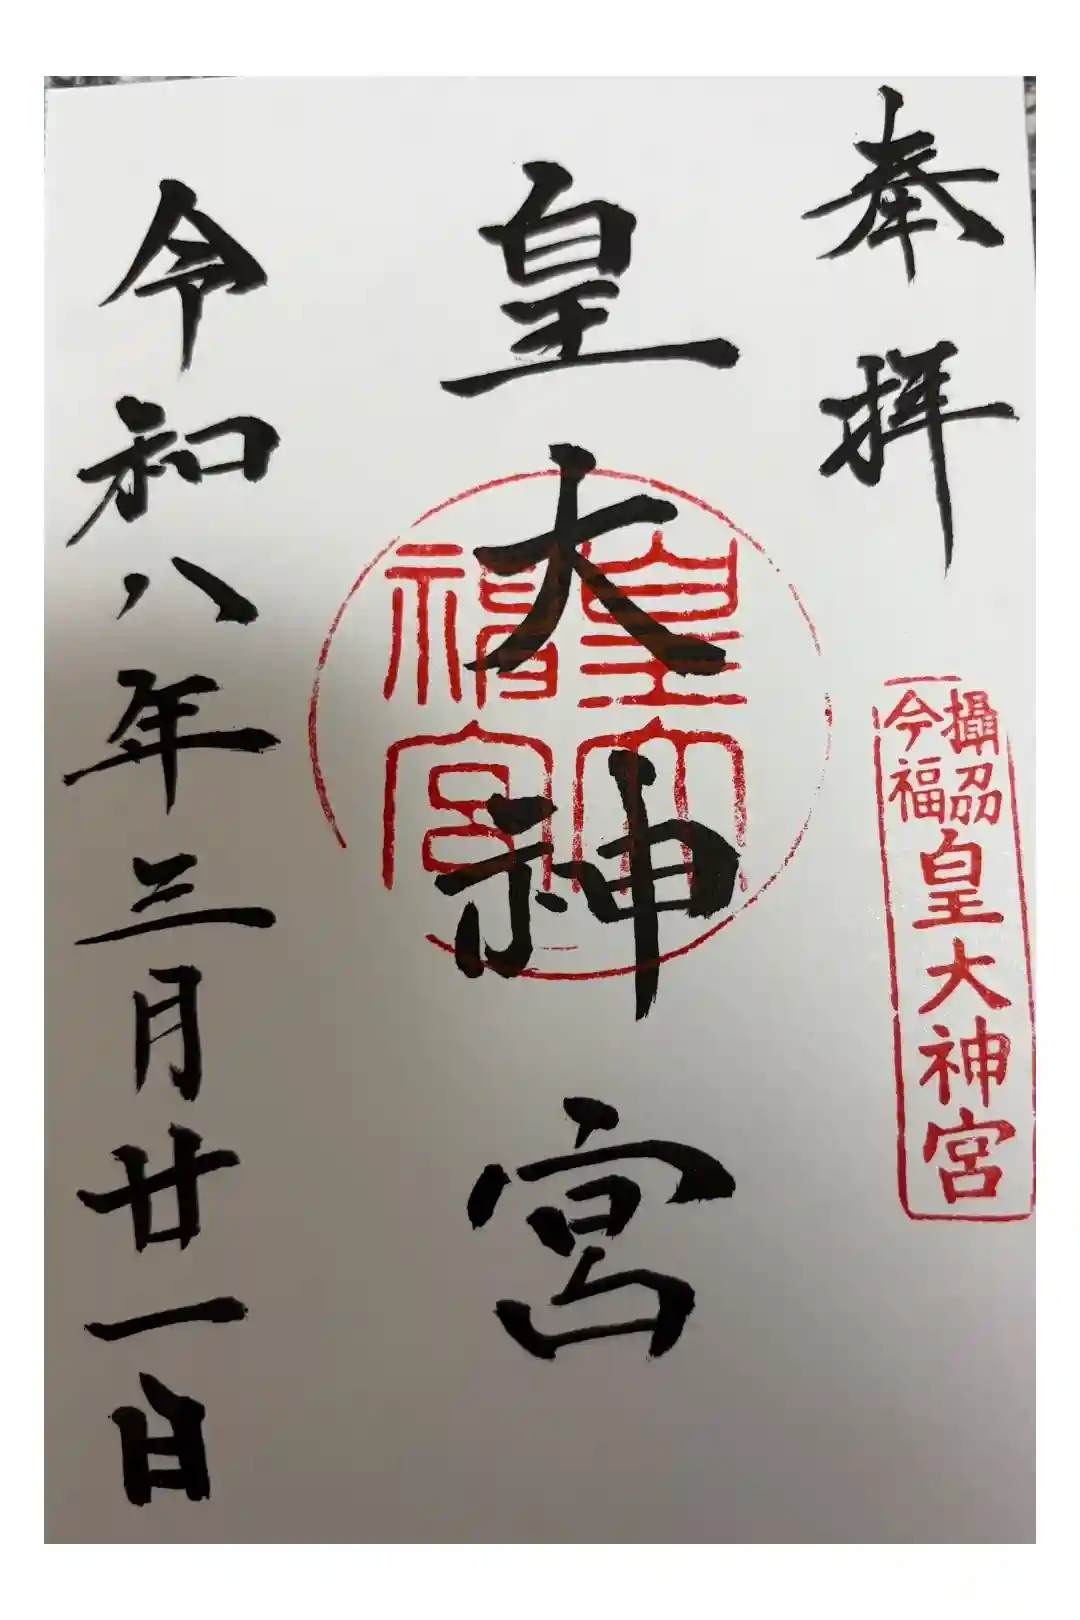 奉拝
攝刕
今福
皇大神宮
皇大神宮
令和八年三月廿一日